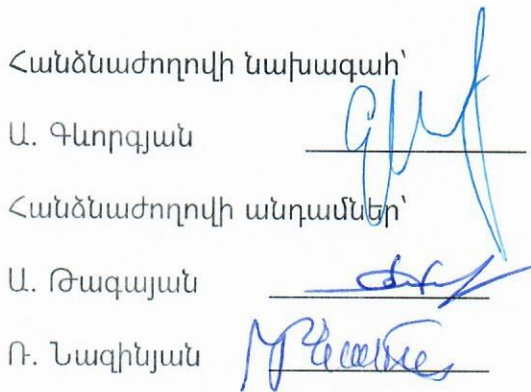 Հանձնաժողովի նախագահ՝
Ա. Գևորգյան
Հանձնաժողովի անդամներ՝
Ա. Թագայան
Ռ. Նազինյան